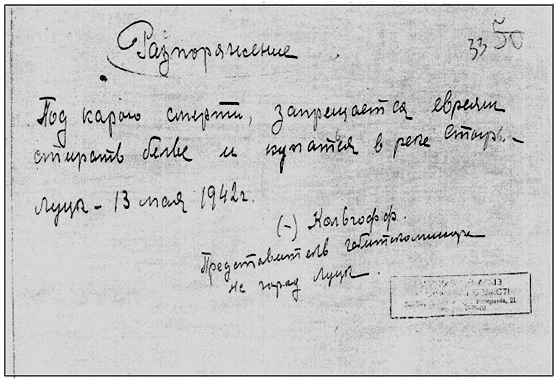 Разпоряжение
33 50
Под карою смерти, запрещается евреям
стирать белье и купатся в реке Стырь.
Луцк – 13 мая 1942г.
(-) Кольгофф.
Представитель гебитскомисара
на город Луцк.